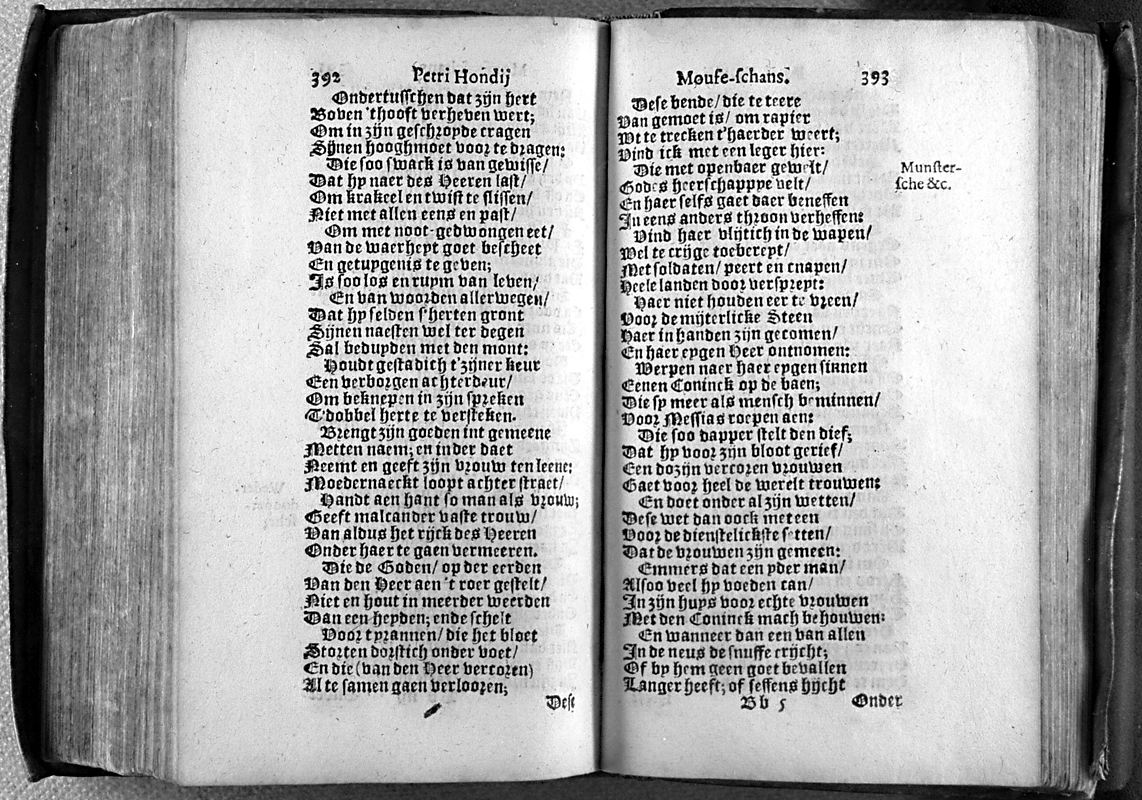 392 Petri Hondij
Ondertusschen dat zijn hert
Boven 'thooft verheven wert;
Om in zijn geschroyde cragen
Sijnen hooghmoet voor te dragen:
Die soo swack is van gewisse/
Dat hy naer des Heeren last/
Om krakeel en twist te slissen/
Niet met allen eens en past/
Om met noot-gedwongen eet/
Van de waerheyt goet bescheet
En getuygenis te geven;
Is soo los en ruym van leven/
En van woorden allerwegen/
Dat hy selden s'herten gront
Sijnen naesten wel ter degen
Sal beduyden met den mont:
Houdt gestadich t'zijner keur
Een verborgen achterdeur/
Om beknepen in zijn spreken
T'dobbel herte te versteken.
Brengt zijn goeden int gemeene
Metten naem; en inder daet
Neemt en geeft zijn vrouw ten leene:
Moedernaeckt loopt achter straet/
Handt aen hant so man als vrouw;
Geeft malcander vaste trouw/
Van aldus het rijck des Heeren
Onder haer te gaen vermeeren.
Die de Goden/ op der eerden
Van den Heer aen 't roer gestelt/
Niet en hout in meerder weerden
Dan een heyden; ende schelt
Voor tyrannen/ die het bloet
Storten dorstich onder voet/
En die (van den Heer vercoren)
Al te samen gaen verlooren;
Dese
Mouse-schans. 393
Dese bende/ die te teere
Van gemoet is/ om rapier
Wt te trecken t'haerder weert;
Vind ick met een leger hier:
Die met openbaer gewelt/
Godes heerschappye velt/
En haer selfs gaet daer beneffen
In eens anders throon verheffen:
Vind haer vlijtich in de wapen/
Wel te crijge toebereyt/
Met soldaten/ peert en cnapen/
Heele landen door verspreyt:
Haer niet houden eer te vreen/
Voor de mijterlicke Steen
Haer in handen zijn gecomen/
En haer eygen Heer ontnomen:
Werpen naer haer eygen sinnen
Eenen Coninck op de baen;
Die sy meer als mensch beminnen/
Voor Messias roepen aen:
Die soo dapper stelt den dief;
Dat hy voor zijn bloot gerief/
Een dozijn vercoren vrouwen
Gaet voor heel de werelt trouwen:
En doet onder al zijn wetten/
Dese wet dan oock met een
Voor de dienstelickste setten/
Dat de vrouwen zijn gemeen:
Emmers dat een yder man/
Alsoo veel hy voeden can/
In zijn huys voor echte vrouwen
Met den Coninck mach behouwen:
En wanneer dan een van allen
In de neus de snuffe crijcht;
Of by hem geen goet bevallen
Langer heeft; of seffens hijcht
Bb 5 Onder
Munster-
sche &c.